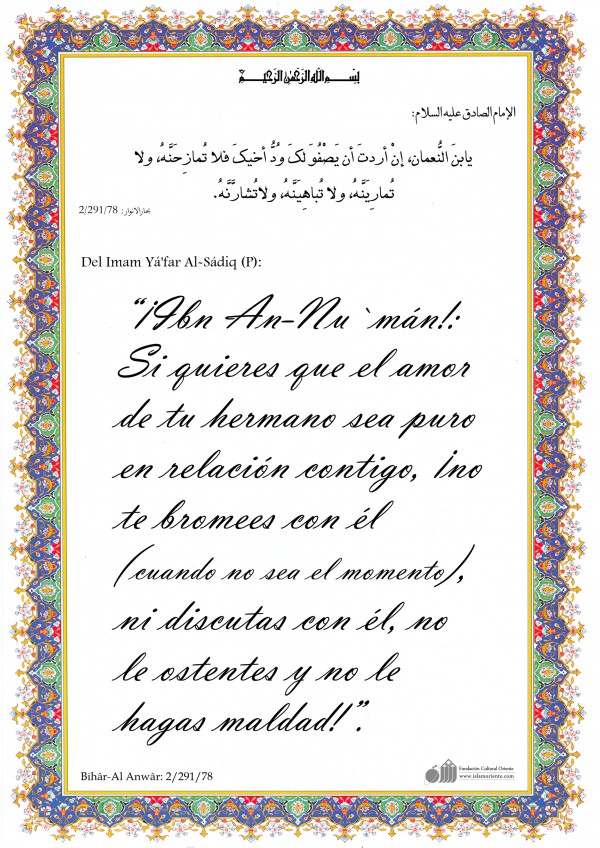 بسم الله الرحمن الرحیم
الإمام الصادق علیه السلام:
یابنَ النُّعمان، إنْ أردتَ أن یَصْفُوَ لکَ وُدُّ أخیکَ فلا تُمازِحَنَّهُ، ولا
تُمارِیَنَّهُ، ولا تُباهِیَنَّهُ، ولاتُشارَّنَّهُ.
بحارالانوار: 2/291/78
Del Imam Yá'far Al-Sádiq (P):
“¡Ibn An-Nu`mán!:
Si quieres que el amor
de tu hermano sea puro
en relación contigo, ¡no
te bromees con él
(cuando no sea el momento),
ni discutas con él, no
le ostentes y no le
hagas maldad!”.
Bihâr-Al Anwâr: 2/291/78
Fundación Cultural Oriente
www.islamoriente.com